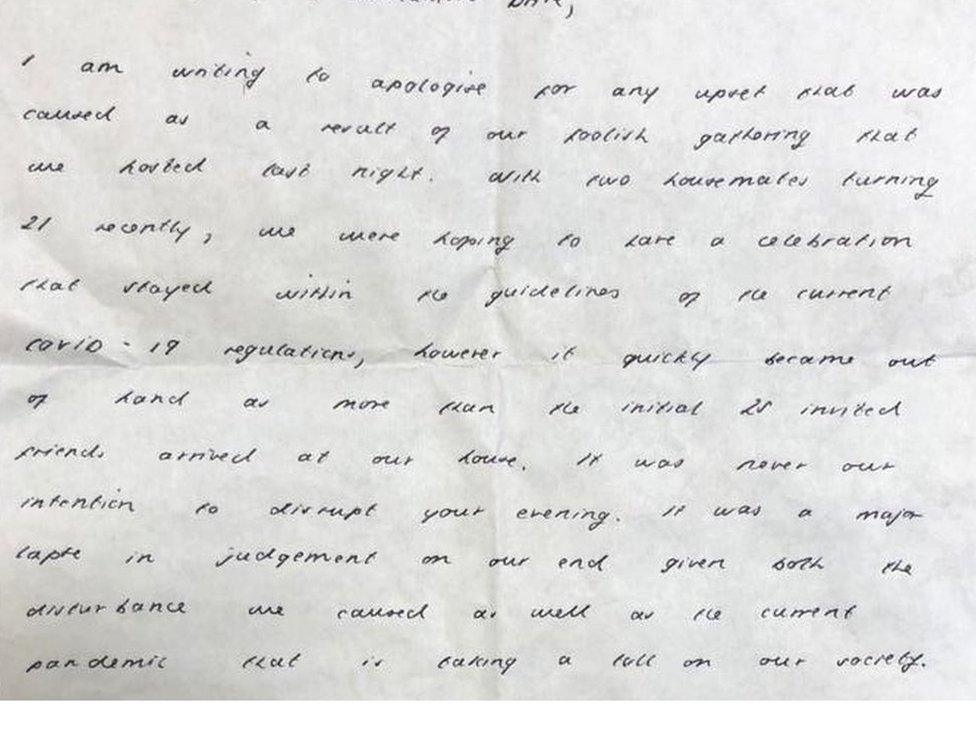 I am writing to apologise for any upset that was
caused as a result of our foolish gathering that
we hosted last night. With two housemates turning
21 recently, we were hoping to have a celebration
that stayed within the guidelines of the current
covid-19 regulations, however it quickly became out
of hand as more than the initial 25 invited
friends arrived at our house. It was never our
intention to disrupt your evening. It was a major
lapse in judgement on our end given both the
disturbance we caused as well as the current
pandemic that is taking a toll on our society.